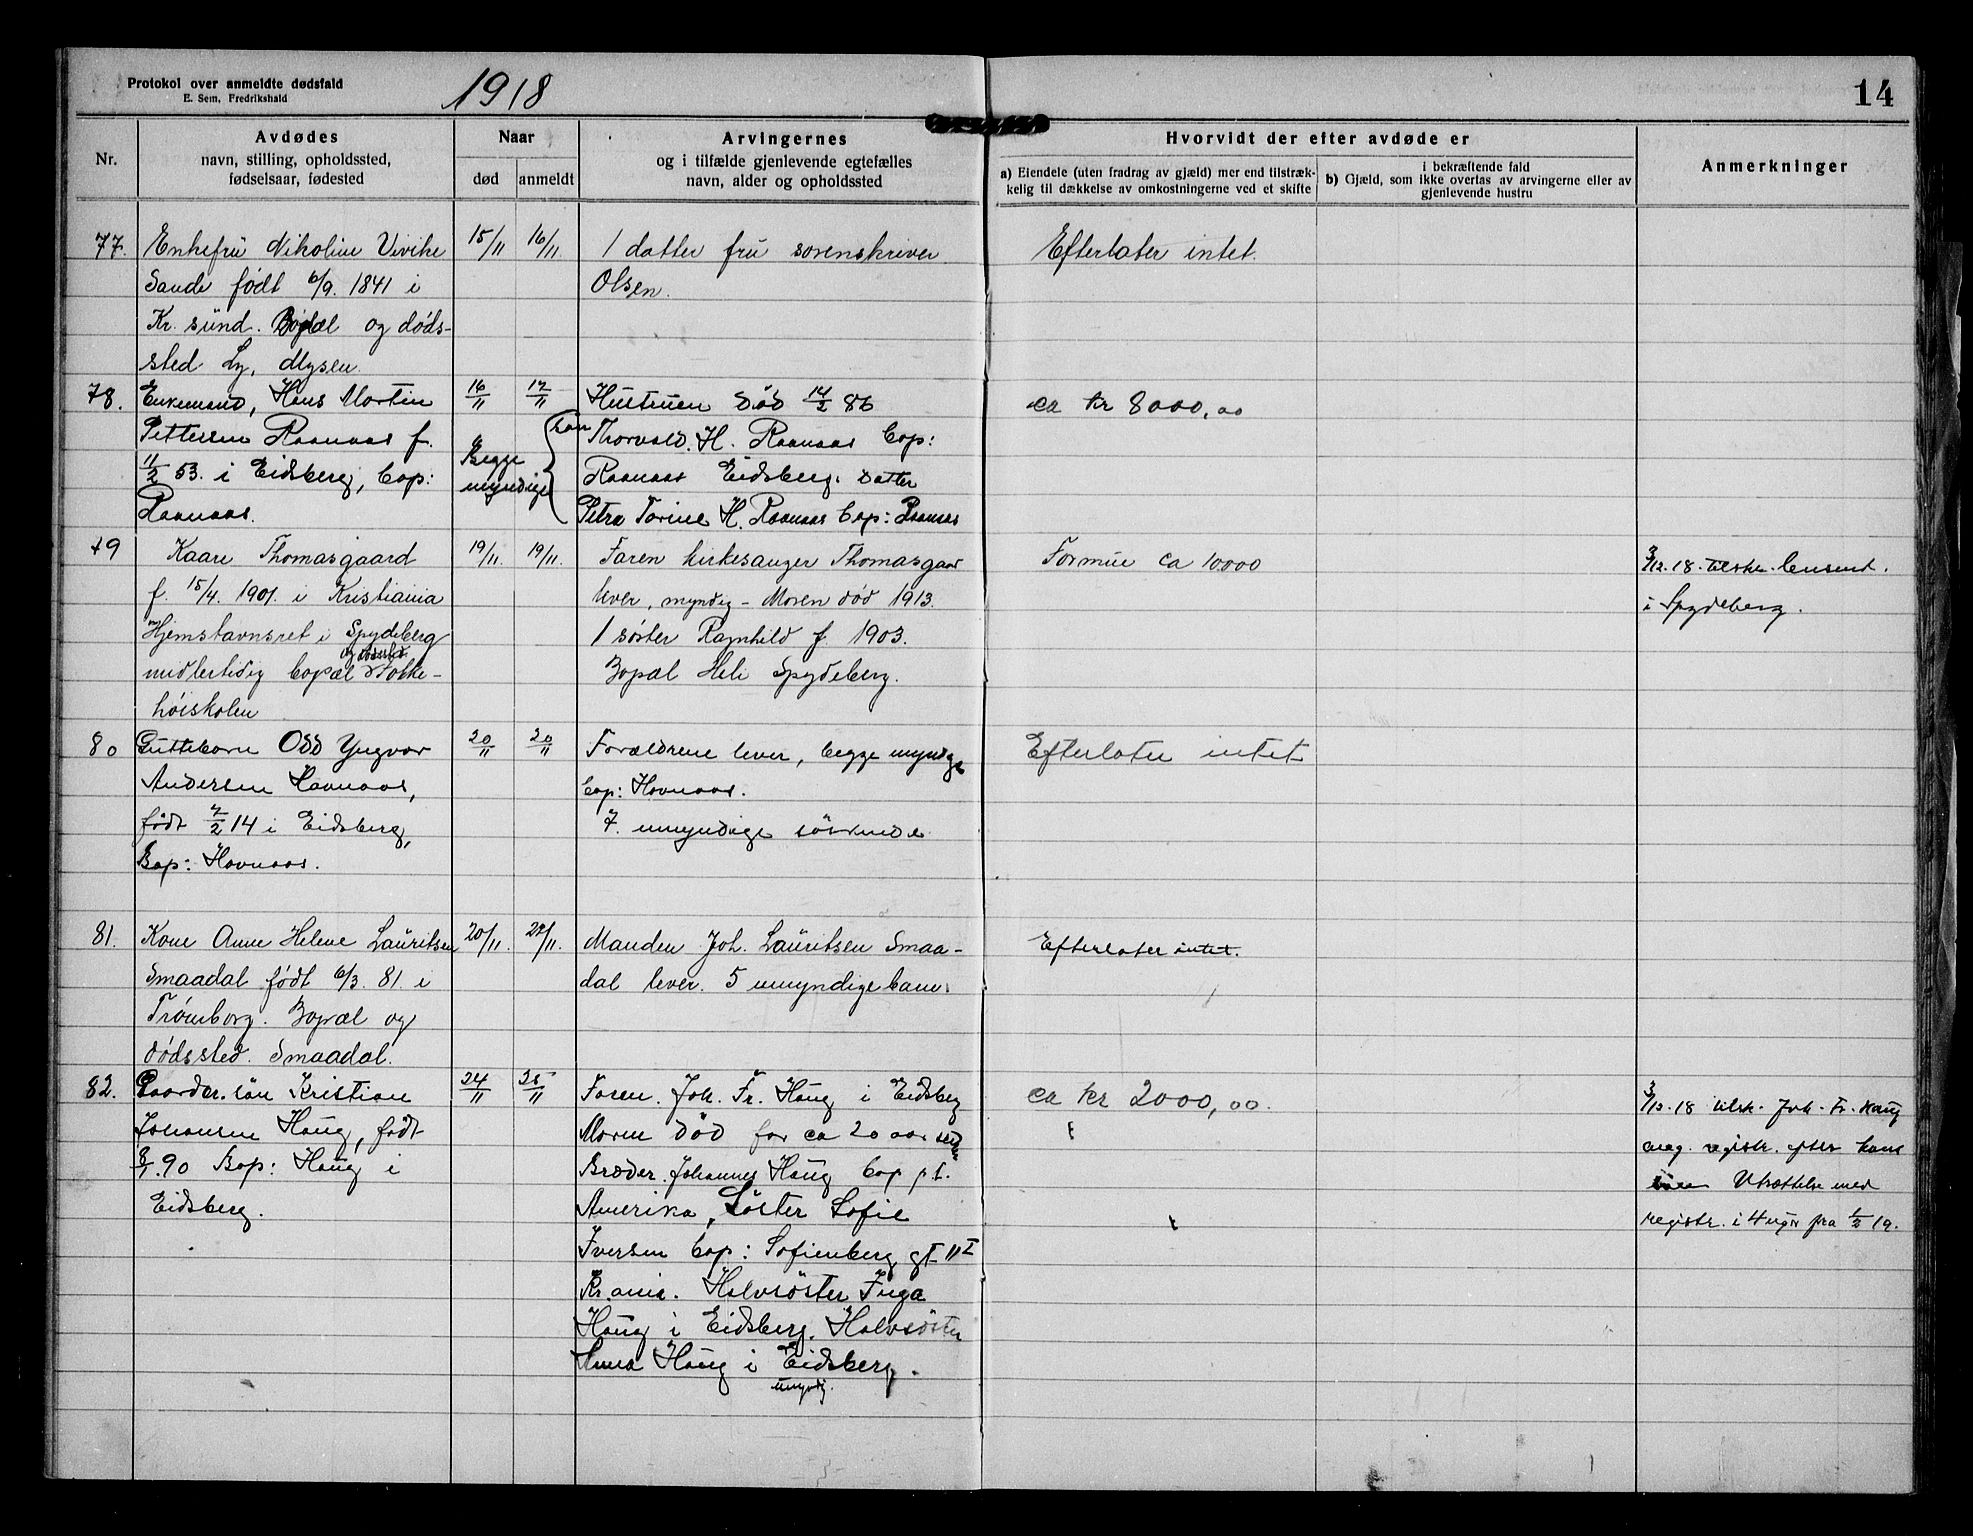 Protokol over anmeldte dødsfald
E. Sem, Fredrikshald
1918
14
Nr.
Avdødes
navn, stilling, opholdssted,
fødselsaar, fødested
Naar
død
anmeldt
Arvingernes
og i tilfælde gjenlevende egtefælles
navn, alder og opholdssted
Hvorvidt der efter avdøde er
a) Eiendele (uten fradrag av gjæld) mer end tilstræk-
kelig til dækkelse av omkostningerne ved et skifte
i bekræftende fald
b) Gjæld, som ikke overtas av arvingerne eller av
gjenlevende hustru
Anmerkninger
77.
Enkefru Nikoline Vivike
Sande født 6/9. 1841 i
Kr. sund. Bopæl og døds-
sted Ly, Mysen.
15/11
16/11.
1 datter fru sorenskriver
Olsen.
Efterlater intet.
78.
Enkemand, Hans Martin
Pettersen Raanaas f.
11/2 53. i Eidsberg, bop:
Raanaas.
16/11
17/11
Begge
myndige
Hustruen død 14/2 86
søn
Thorvald. H. Raanaas bop:
Raanaas Eidsberg. Datter
Petra Torine H. Raanaas bop: Raanaas
ca kr 8000,00
79
Kaare Thomasgaard
f. 15/4. 1901. i Kristiania
Hjemstavnsret i Spydeberg
og dødssted
midlertidig bopæl Folke-
høiskolen
19/11.
19/11.
Faren kirkesanger Thomasgaard
lever, myndig – Moren død 1913.
1 søster Ragnhild f. 1903.
Bopæl Heli Spydeberg.
Formue ca 10000
3/12. 18. tilskr. lensmd.
i Spydeberg.
80
Guttebarn Odd Yngvar
Andersen Havnaas,
født 7/2 14 i Eidsberg,
Bop: Havnaas.
20/11
20/11
Forældrene lever, begge myndige
bop: Havnaas.
7. umyndige søskende
Efterlater intet
81.
Kone Anne Helene Lauritsen
Smaadal født 6/3. 81. i
Trømborg. Bopæl og
dødssted. Smaadal.
20/11.
22/11.
Manden Joh. Lauritsen Smaa-
dal lever. 5 umyndige barn.
Efterlater intet.
82.
Gaardbr. søn Kristian
Johansen Haug, født
8/7. 90 Bop: Haug i
Eidsberg.
24/11
25/11
Faren. Joh. Fr. Haug i Eidsberg
Moren død for ca 20 aar siden
Brøder. Johannes Haug bop p.t.
Amerika, Søster Sofie
Iversen bop: Sofienberg gt 11 I
Kr.ania. Halvsøster Inga
Haug i Eidsberg. Halvsøster
Anna Haug i Eidsberg.
umyndig.
ca kr 2000,00.
3/12. 18 tilskr. Joh. Fr. Haug
ang. registr. efter hans
søn Utsættelse med
registr. i 4 uger fra 1/2 19.